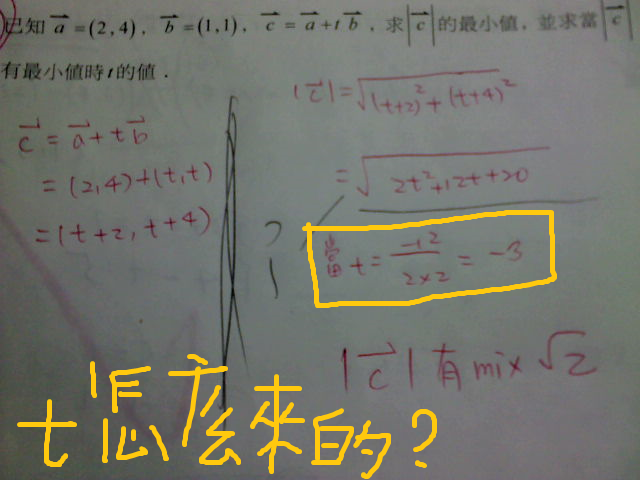 已知 a⃗ = (2,4), b⃗ = (1,1), c⃗ = a⃗ + t b⃗, 求 |c⃗| 的最小值, 並求當 |c⃗|
有最小值時 t 的值.
c⃗ = a⃗ + t b⃗
= (2,4)+(t,t)
= (t+2, t+4)
|c⃗| = √((t+2)² + (t+4)²)
= √(2t²+12t+20)
?
當 t = -12/(2×2) = -3
|c⃗| 有 mix √2
t怎麼來的?